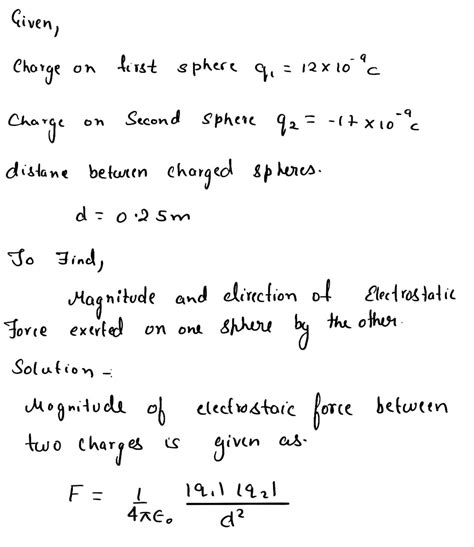 Given,
Charge on first sphere q₁ = 12×10⁻⁹c
Charge on Second sphere q₂ = -17×10⁻⁹c
distane between charged spheres.
d = 0.25m
To Find,
Magnitude and direction of Electrostatic
Force exerted on one sphere by the other.
Solution -
Magnitude of electrostaic force between
two charges is given as.
F = 1/4πϵ₀ |q₁| |q₂|/d²